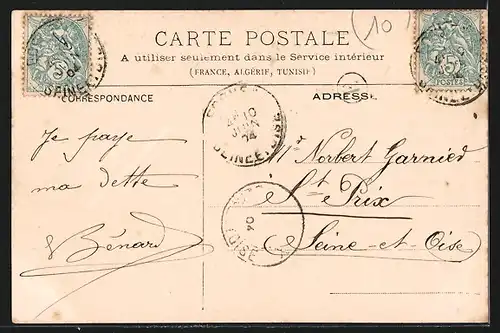 (10)
CARTE POSTALE
A utiliser seulement dans le Service intérieur
(FRANCE, ALGÉRIE, TUNISIE)
CORRESPONDANCE
ADRESSE
Je paye
ma dette
Bénard
M Norbert Garnied
St Prix
Seine-et-Oise
10
04
SEINE-ET-OISE
04
5
POSTES